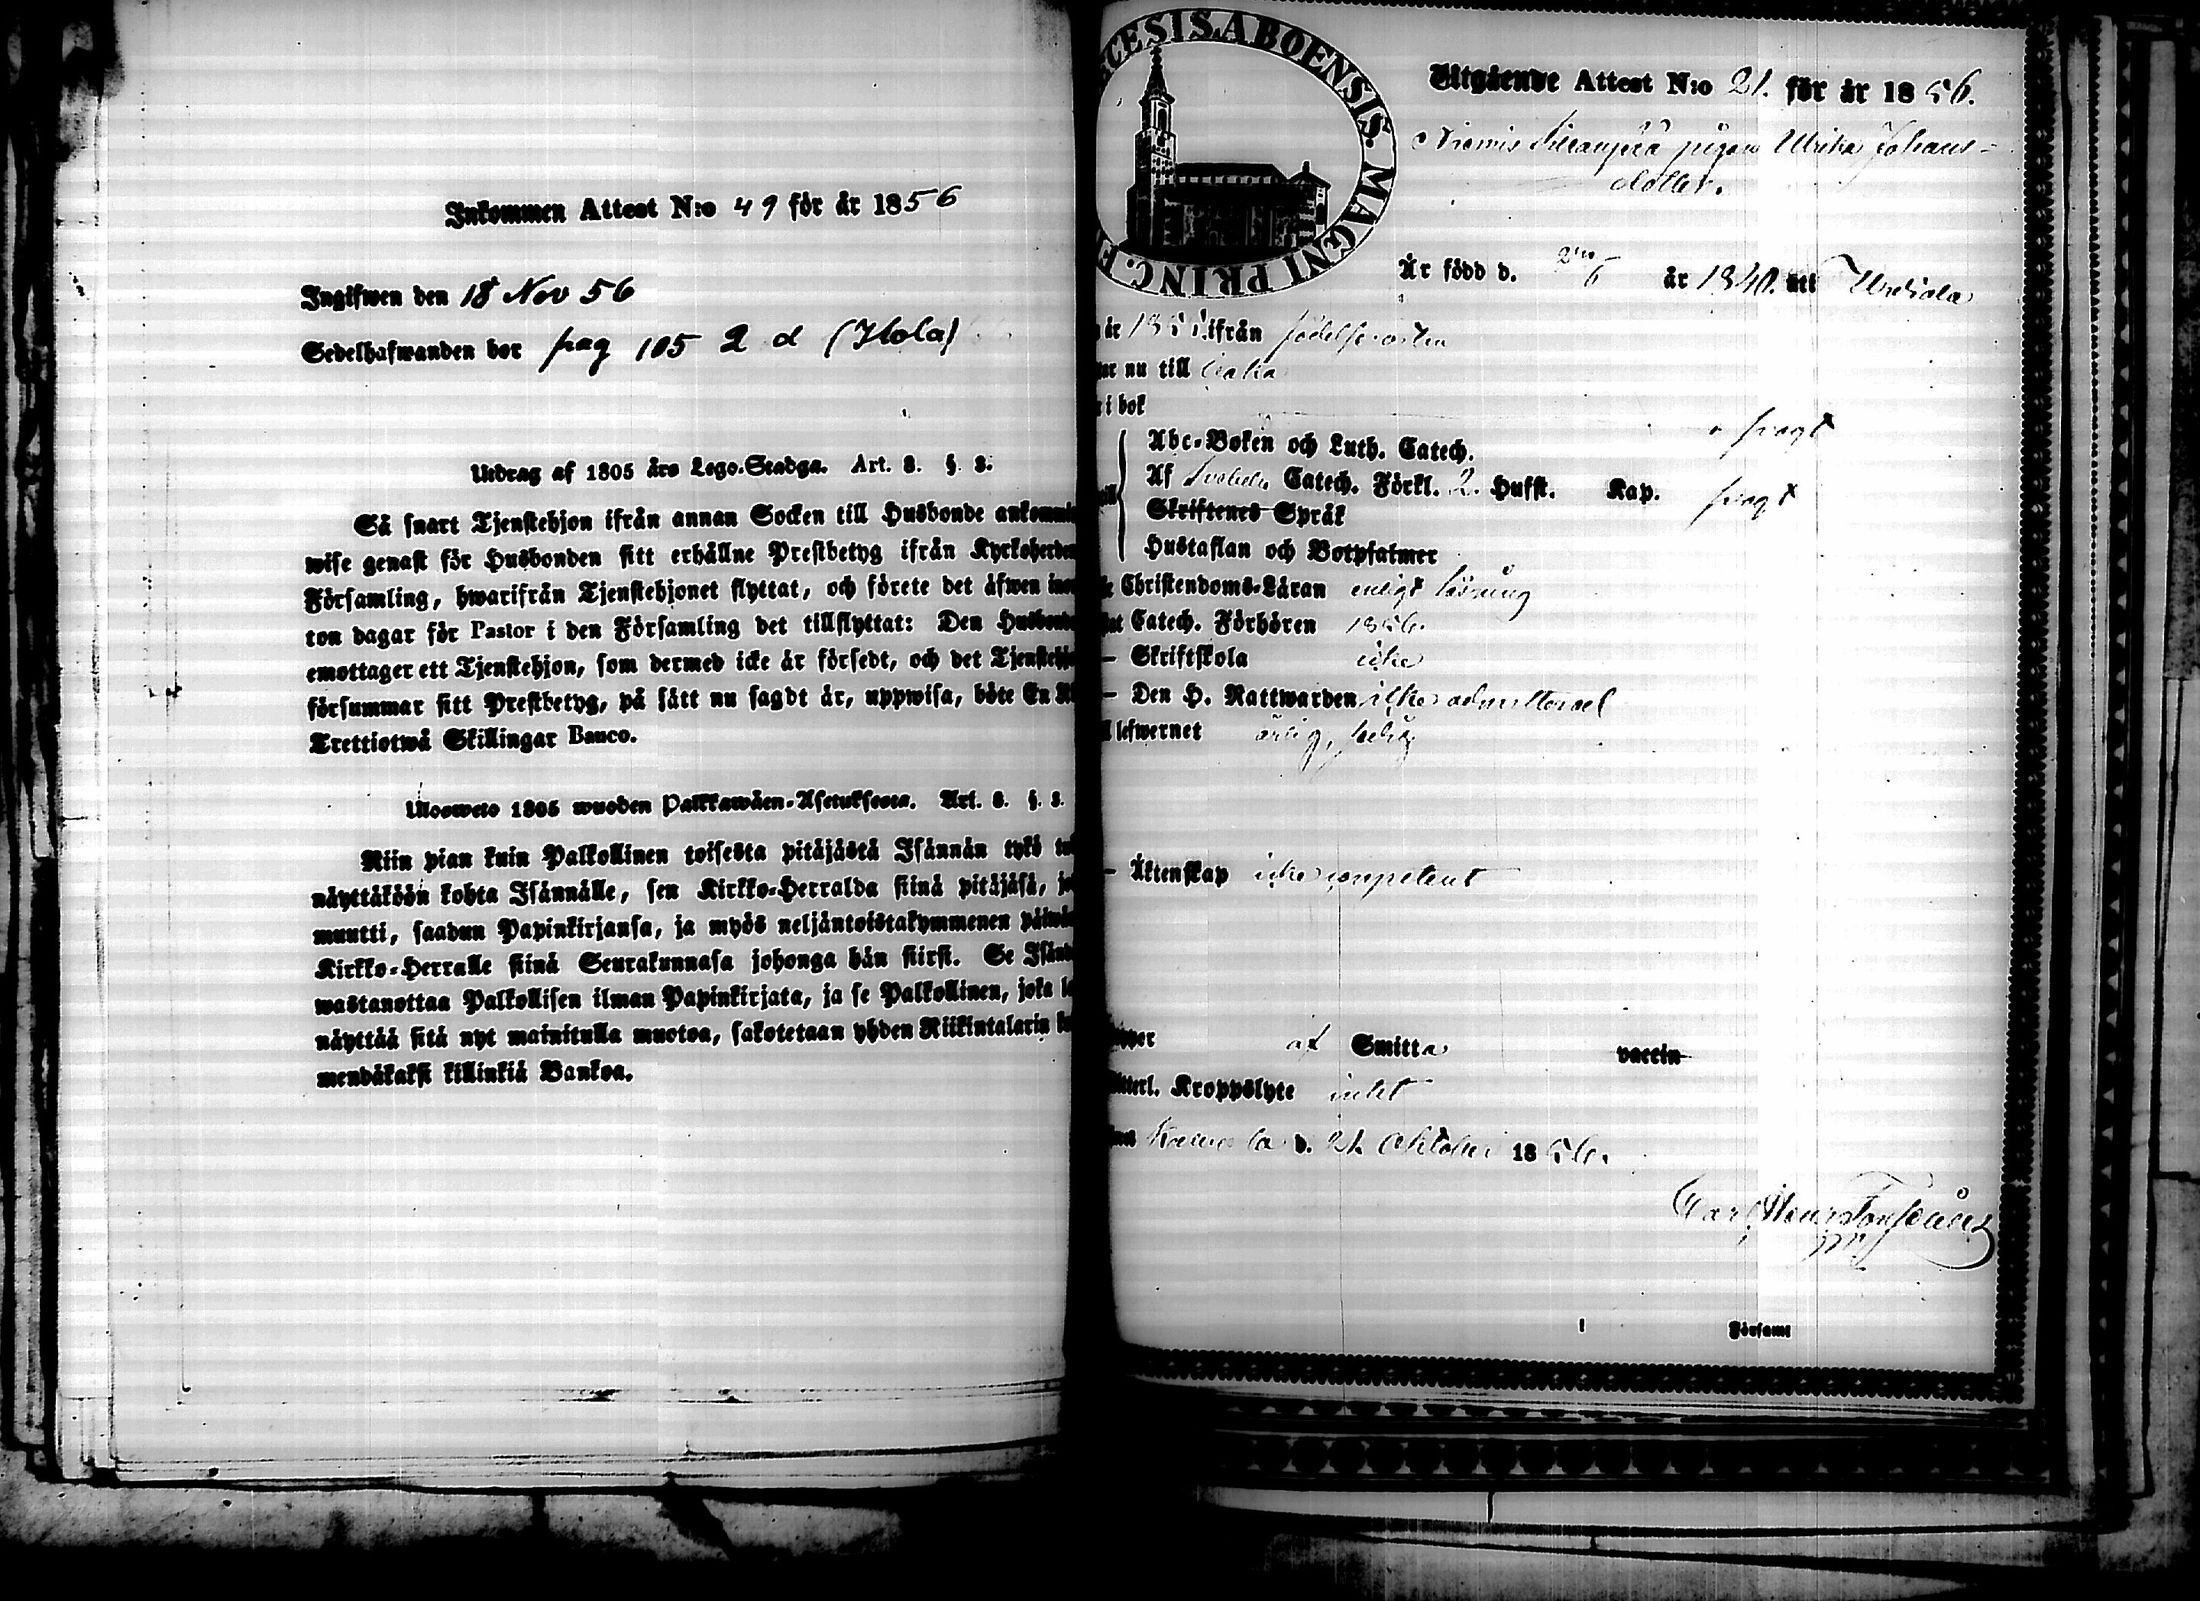 Inkommen Attest N:o 49 för år 1856
Ingifwen den 18 Nov 56
Sedelhafwanden bor pag 105 2 d (Hola)
Utdrag af 1805 års Lego-Stadga. Art. 8. §. 3.
Så snart Tjenstehjon ifrån annan Socken till Husbonde ankommit
wise genast för Husbonden sitt erhållne Prestbetyg ifrån Kyrkoherden
Församling, hwarifrån Tjenstehjonet flyttat, och förete det äfwen inom
ton dagar för Pastor i den Församling det tillflyttat: Den Husbonde
emottager ett Tjenstehjon, som dermed icke är försedt, och det Tjenstehjo
försummar sitt Prestbetyg, på sätt nu sagdt är, uppwisa, böte En R
Trettiotwå Skillingar Banco.
Ulosweto 1805 wuoden Palkkawäen-Asetuksesta. Art. 8. §. 3.
Niin pian kuin Palkollinen toisesta pitäjästä Isännän tykö tu
näyttäköön kohta Isännälle, sen Kirkko-Herralda siinä pitäjäsä, jo
muutti, saadun Papinkirjansa, ja myös neljäntoistakymmenen päiwä
Kirkko-Herralle siinä Seurakunnasa johonga hän siirsi. Se Isänd
wastanottaa Palkollisen ilman Papinkirjata, ja se Palkollinen, joka la
näyttää sitä nyt mainitulla muotoa, sakotetaan yhden Riikintalarin ko
mendäkaksi killinkiä Bankoa.
CESIS. ABOENSIS. MAGNI PRINC. F
Utgående Attest N:o 21. för år 1856.
pigan Ulrika Johans-
dotter.
Är född d. 6 år 1840. uti Urdiala
år 185 ifrån födelseorten
nu till
i bok
Abc-Boken och Luth. Catech. frägt
Af Svebelii Catech. Förkl. 2. Hufst. Kap. frägt
Skriftenes Språk
Hustaflan och Botpsalmer
Christendoms-Läran enligt läsning
Catech. Förhören 1856.
— Skriftskola icke
— Den H. Nattwarden icke admitterad
lefwernet ärlig,
— Äktenskap icke competent
af Smitta vaccin
Kroppslyte intet
d. 21 Oktober 1856.
Carl
Församl